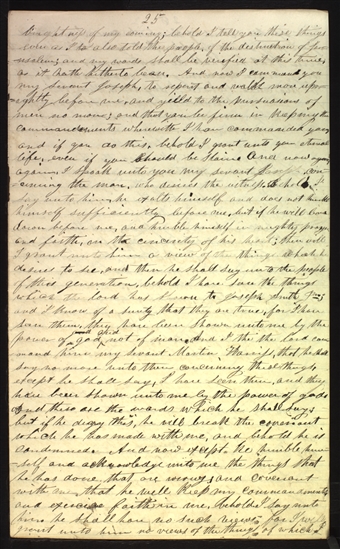 25
of my coming; behold I tell you these things
even as I also told the people of the destruction of Jeru
salem; and my word shall be verified at this time
as it hath hitherto been. And now I command you
my servant Joseph, to repent and walk more upri
ghtly before me, and yield to the persuasions of
men no more; and that you be firm in keeping the
commandments wherewith I have commanded you
and if you do this, behold I grant unto you eternal
life, even if you should be slain. And now
again, I speak unto you my servant Joseph con
cerning the man, who desires the witness behold I
say unto him, he exalts himself and does not humble
himself sufficiently before me, but if he will bow
down before me, and humble himself in mighty prayer
and faith, in the sincerity of his heart; then will
I grant unto him a view of the things which he
desires to see, and then he shall say unto the people
of this generation, behold I have seen the things
which the lord has shown to Joseph Smith Jr.
and I know of a surety that they are true, for I have
seen them, they have been shown unto me by the
power of god, not of man. And I the the lord com
mand him my servant Martin Harris, that he shall
say no more unto them concerning these things
except he shall say, I have seen them, and they
have been shown unto me by the power of god
and these are the words which he shall say;
but if he deny this, he will break the covenant
which he has made with me, and behold he is
condemned. And now except he humble him
self and acknowledge unto me the things that
he has done, that are wrong, and covenant
with me, that he will keep my commandments
and exercise faith in me, behold I say unto
him he shall have no such views for I will
grant unto him no views of the things of which